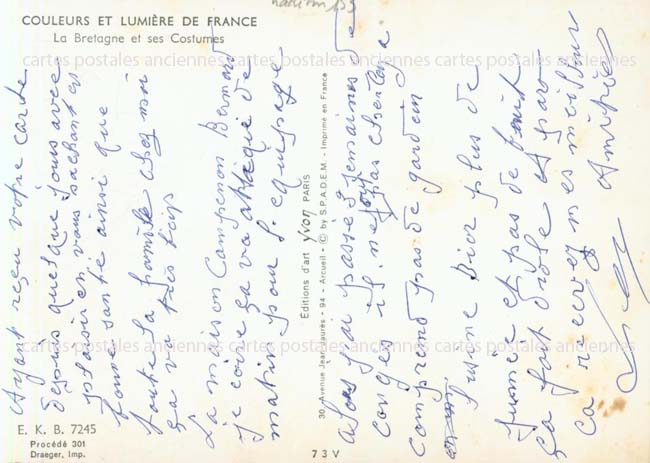 COULEURS ET LUMIÈRE DE FRANCE
La Bretagne et ses Costumes
cartes postales anciennes cartes postales anciennes cartes postales anciennes
Ayant reçu votre carte
depuis quelque jours avec
plaisir en vous sachant en
bonne santé ainsi que
toute la famille chez moi
ça va très bien
La maison Campenon Bernard
je crois ça va
matin pour l'équipage
Editions d'art yvon PARIS
30, Avenue Jean-Jaurès - 94 - Arcueil - © by S.P.A.D.E.M. - Imprimé en France
alors j'ai passé 3 semaines de
congés il ne faut pas
comprend pas de gardin
usine plus de
fumée et pas de bruit
ça fait drôle A part
ça recevez mes meilleur
Amitiés
cartes postales anciennes cartes postales anciennes cartes postales anciennes
E. K. B. 7245
Procédé 301
Draeger, Imp.
73V